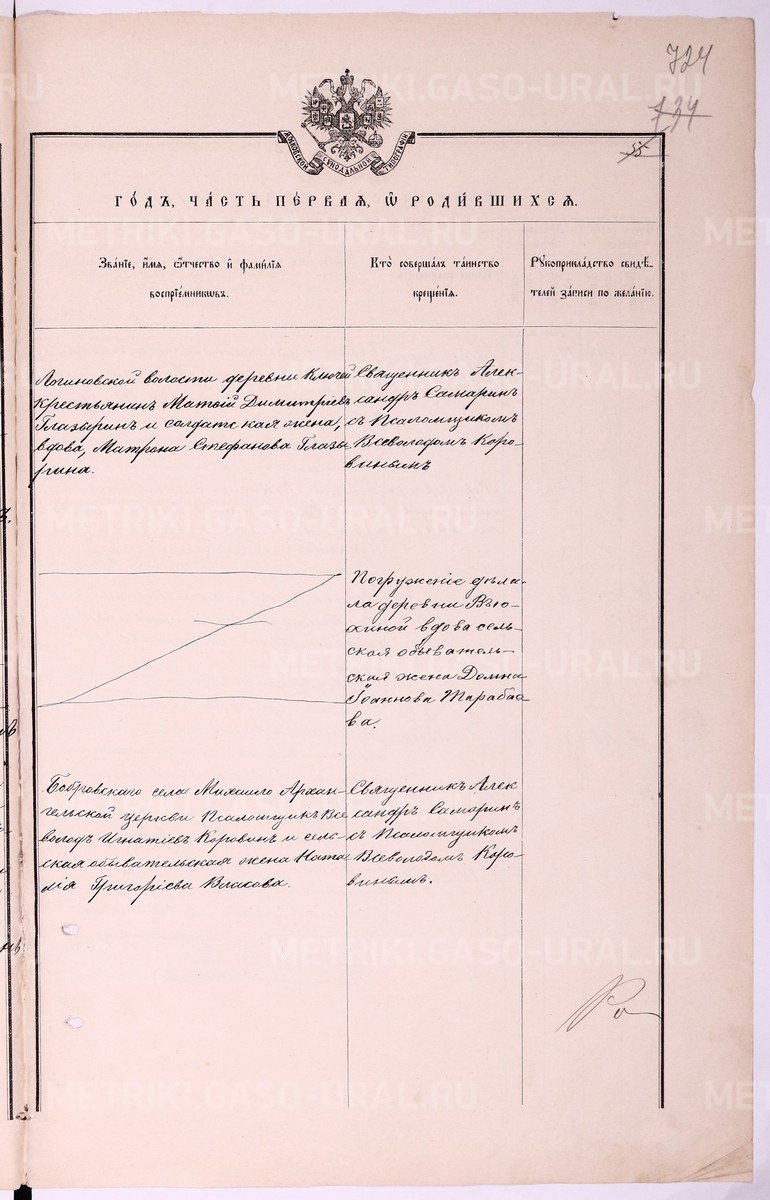 724
734
55
МОСКОВСКОЙ СѴНОДАЛЬНОЙ ТИПОГРАФІИ
ГО́ДЪ, ЧА́СТЬ ПЕ́РВАѦ, Ѽ РОДИ́ВШИХСѦ.
Зва́нїе, и҆́мѧ, ѻ҆́тчество и҆ фами́лїѧ
воспрїе́мникѡвъ.
Кто̀ соверша́лъ та́инство
креще́нїѧ.
Рꙋкоприкла́дство свидѣ́-
телей за́писи по жела́нїю.
Логиновской волости деревни Ключей
крестьянинъ Матѳій Димитріевъ
Глазыринъ и солдатская жена,
вдова, Матрона Стефанова Глазы
рина.
Священникъ Алек-
сандръ Самаринъ
съ Псаломщикомъ
Всеволодомъ Коро-
винымъ
Погруженіе дѣла-
ла деревни Вью-
хиной вдова сель-
ская обыватель-
ская жена Домна
Іоаннова Тарабае
ва.
Бобровскаго села Михаило Архан-
гельской церкви Псаломщикъ Все
володъ Игнатіевъ Коровинъ и сель-
ская обывательская жена Ната
лія Григоріева Власова.
Священникъ Алек
сандръ Самаринъ
съ Псаломщикомъ
Всеволодомъ Коро-
винымъ.
METRIKI.GASO-URAL.RU